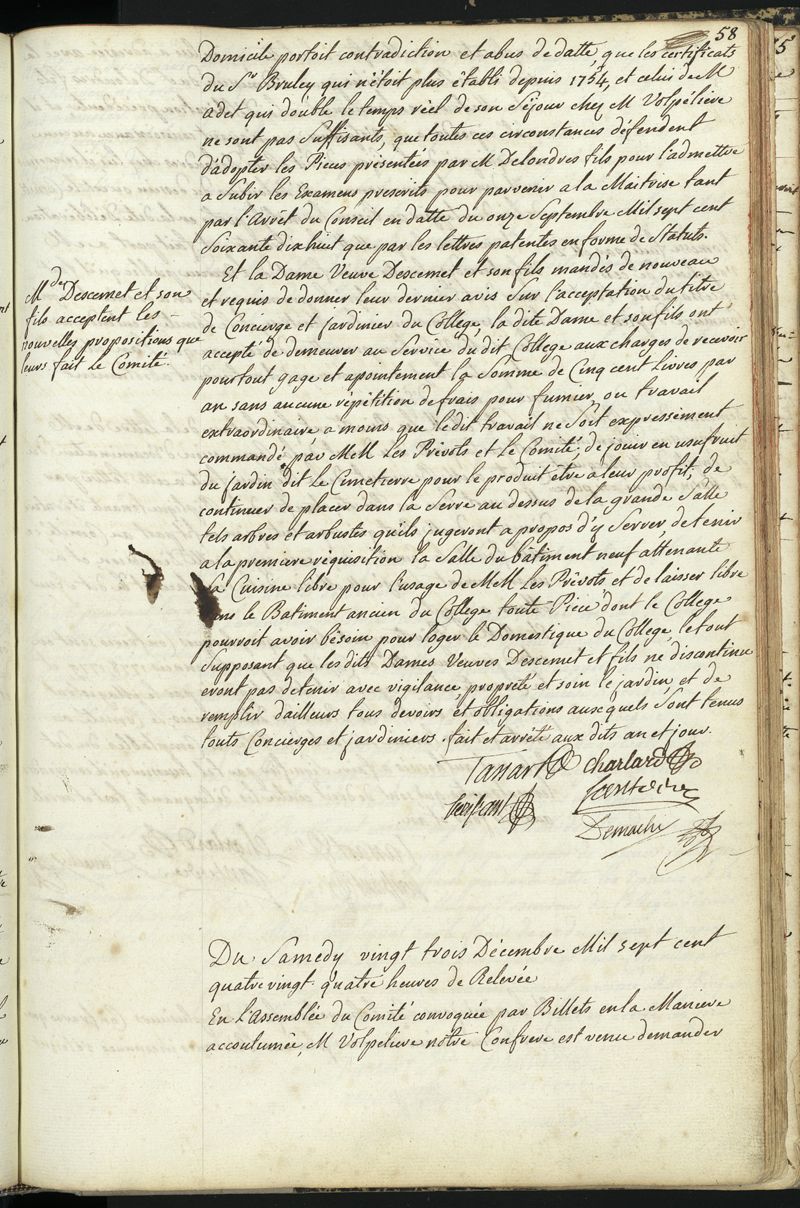 58
Domicile portoit contradiction et abus de datte, que les certificats
du Sr. Bruley qui n'étoit plus établi depuis 1754, et celui de M
adet qui double le temps réel de son Séjour chez M Volpélieve
ne sont pas Suffisants, que toutes ces circonstances défendent
d'adopter les Pieces présentées par M Delondres fils pour l'admettre
a Subir les Examens prescrits pour parvenir a la Maitrise tant
par l'Arrêt du Conseil en datte du onze Septembre Mil sept cent
Soixante dix huit que par les lettres patentes en forme de Statuts.
Et la Dame Veuve Descemet et son fils mandés de nouveau
et requis de donner leur dernier avis Sur l'acceptation du titre
de Concierge et Jardinier du College, la dite Dame et son fils ont
accepté de demeurer au Service du dit College aux charges de recevoir
pour tout gage et apointement la Somme de Cinq cent Livres par
an sans aucune répétition de frais pour fumier, ou travail
extraordinaire a moins que le dit travail ne Soit expressement
commandé par MeM Les Prévots et Le Comité; de jouir en usufruit
du jardin dit Le Cimetierre pour le produit etre a leur profit, de
continuer de placer dans la Serre au dessus de la grande Salle
tels arbres et arbustes qu'ils jugeront a propos d'y Serrer de tenir
a la premiere réquisition la Salle du bâtiment neuf attenante
la Cuisine libre pour l'usage de MeM Les Prévots et de laisser libre
dans le Batiment ancien du College toute Piece dont le College
pourroit avoir bésoin pour loger le Domestique du College, le tout
Supposant que les dits Dames Veuves Descemet et fils ne discontinu
eront pas de tenir avec vigilance, propreté et soin le jardin, et de
remplir d'ailleurs tous devoirs et obligations auxquels Sont tenus
touts Concierges et jardiniers. fait et arrêté aux dits an et jour.
Mde Descemet et son
fils acceptent les
nouvelles propositions que
leurs fait Le Comité.
Tassart Charlard
Demachy
Du Samedy vingt trois Décembre Mil sept cent
quatre vingt. quatre heures de Relevée
En L'Assemblée du Comité convoquée par Billets en la Maniere
accoutumée, M Volpelieve notre Confrere est venu demander